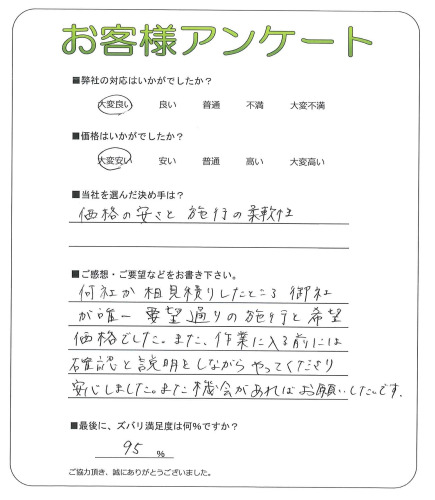 お客様アンケート
■弊社の対応はいかがでしたか?
大変良い 良い 普通 不満 大変不満
■価格はいかがでしたか?
大変安い 安い 普通 高い 大変高い
■当社を選んだ決め手は?
価格の安さと 施行の柔軟性
■ご感想・ご要望などをお書き下さい。
何社か相見積りしたところ 御社
が唯一 要望通りの施行と希望
価格でした。また、作業に入る前には
確認と説明をしながら やってくださり
安心しました。また機会があればお願いしたいです.
■最後に、ズバリ満足度は何%ですか?
95 %
ご協力頂き、誠にありがとうございました。